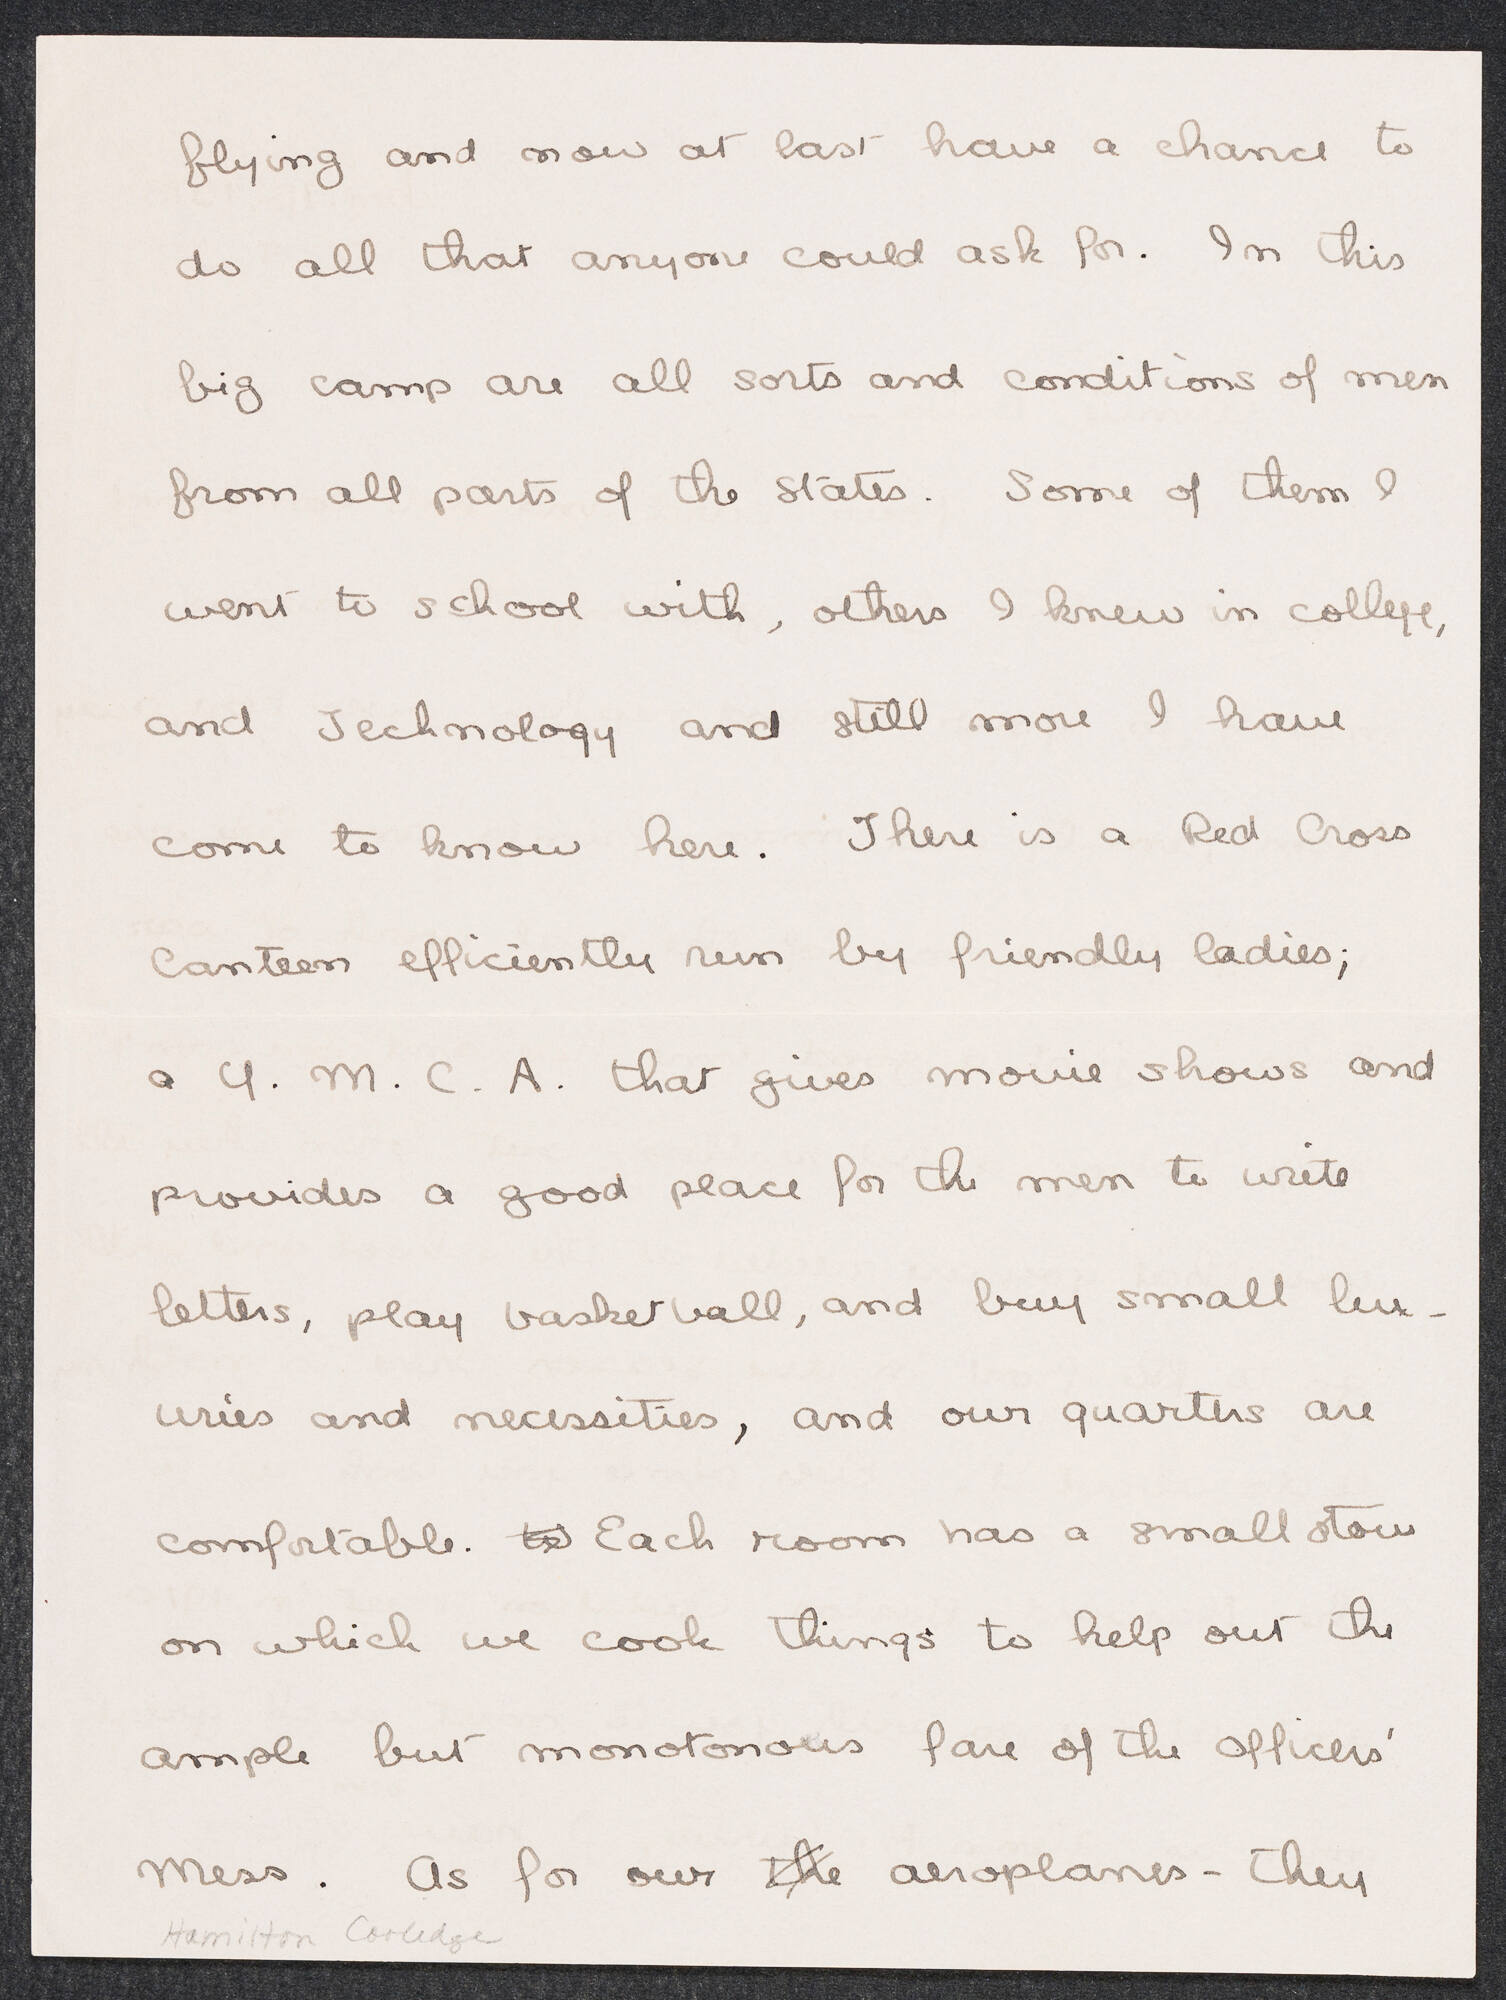 flying and now at last have a chance to
do all that anyone could ask for. In this
big camp are all sorts and conditions of men
from all parts of the States. Some of them I
went to school with, others I knew in college,
and Technology and still more I have
come to know here. There is a Red Cross
Canteen efficiently run by friendly ladies;
a Y. M. C. A. that gives movie shows and
provides a good place for the men to write
letters, play basketball, and buy small lux-
uries and necessities, and our quarters are
comfortable. to Each room has a small stove
on which we cook things to help out the
ample but monotonous fare of the officers'
Mess. As for our the aeroplanes - they
Hamilton Coolidge